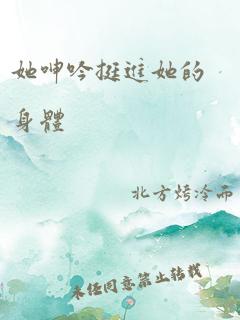 她呻吟挺進她的
身體
北方烤冷而
未经同意禁止转载